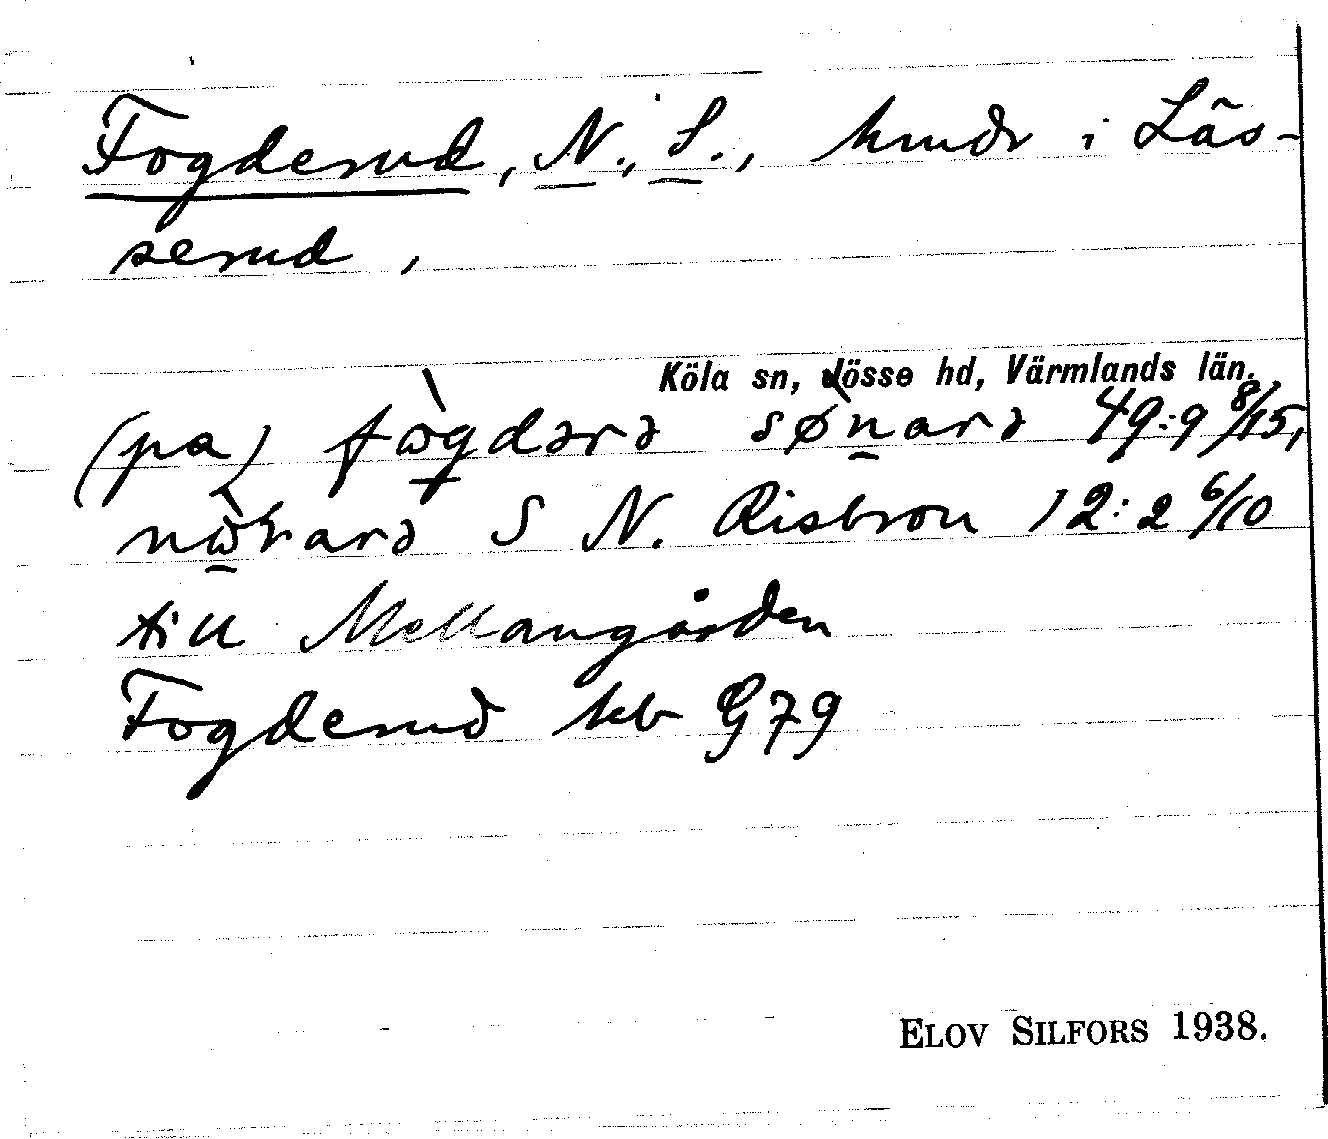 Fogderud, N., S., hmdr i Läs-
serud,
Köla sn, Jösse hd, Värmlands län.
(pa) fὼgdərə sønarə 49:9 8/15,
nὼʀarə S N. Risbron 12:2 6/10
till Mellangården
Fogderud hb G79
ELOV SILFORS 1938.